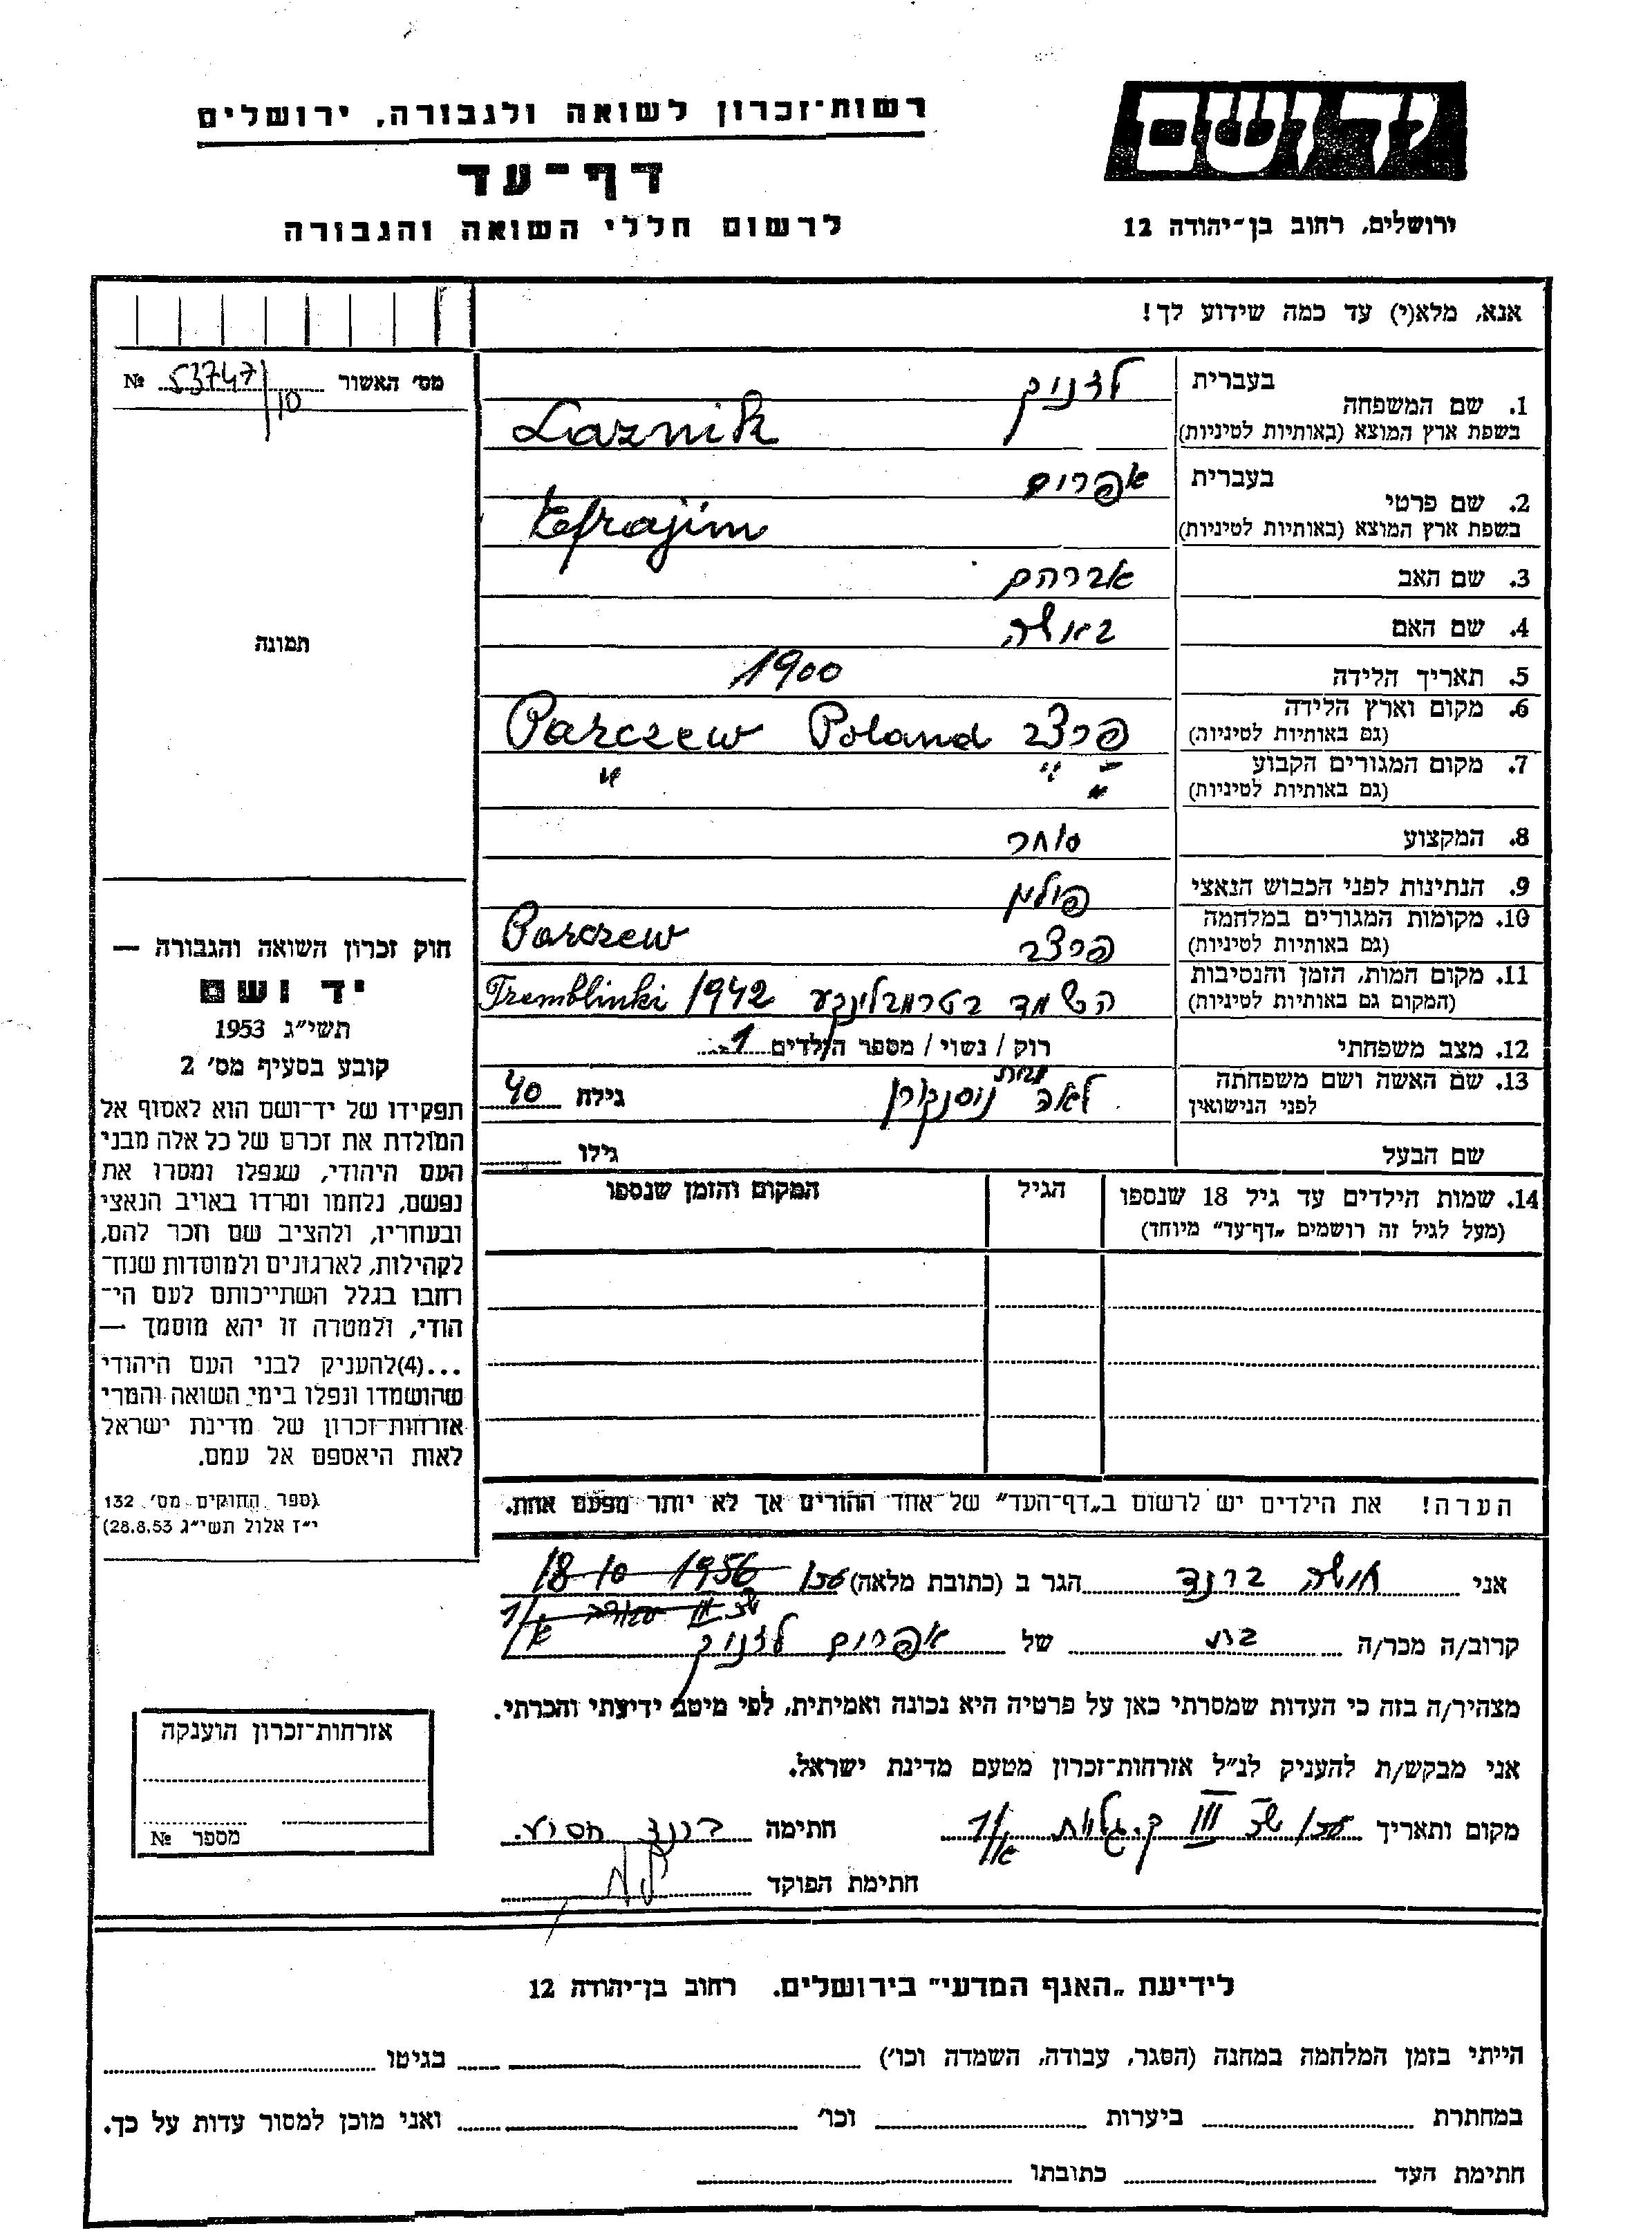 רשות־זכרון לשואה ולגבורה, ירושלים
דף־עד
לרשום חללי השואה והגבורה
יד ושם
ירושלים, רחוב בן־יהודה 12
אנא, מלא(י) עד כמה שידוע לך!
מס׳ האשור 53747/10 №
תמונה
בעברית לזניק
1. שם המשפחה
בשפת ארץ המוצא (באותיות לטיניות) Laznik
בעברית אפרים
2. שם פרטי
בשפת ארץ המוצא (באותיות לטיניות) Efrajim
3. שם האב אברהם
4. שם האם באשה
5. תאריך הלידה 1900
6. מקום וארץ הלידה
(גם באותיות לטיניות) פרצב Parczew Poland
7. מקום המגורים הקבוע " "
(גם באותיות לטיניות) "
8. המקצוע סוחר
9. הנתינות לפני הכבוש הנאצי פולין
10. מקומות המגורים במלחמה
(גם באותיות לטיניות) פרצב Parczew
11. מקום המות, הזמן והנסיבות
(המקום גם באותיות לטיניות) השמד בטרמבלינקע 1942 Tremblinki
12. מצב משפחתי רוק / נשוי / מספר הילדים 1
13. שם האשה ושם משפחתה
לפני הנישואין לאה גילה 40
שם הבעל גילו
14. שמות הילדים עד גיל 18 שנספו הגיל המקום והזמן שנספו
(מעל לגיל זה רושמים „דף־עד״ מיוחד)
הערה! את הילדים יש לרשום ב„דף־העד״ של אחד ההורים אך לא יותר מפעם אחת.
חוק זכרון השואה והגבורה —
יד ושם
תשי״ג 1953
קובע בסעיף מס׳ 2
תפקידו של יד־ושם הוא לאסוף אל
המולדת את זכרם של כל אלה מבני
העם היהודי, שנפלו ומסרו את
נפשם, נלחמו ומרדו באויב הנאצי
ובעוזריו, ולהציב שם וזכר להם,
לקהילות, לארגונים ולמוסדות שנח־
רבו בגלל השתייכותם לעם הי־
הודי, ולמטרה זו יהא מוסמך —
...(4)להעניק לבני העם היהודי
שהושמדו ונפלו בימי השואה והמרי
אזרחות־זכרון של מדינת ישראל
לאות היאספם אל עמם.
(ספר החוקים מס׳ 132
י״ז אלול תשי״ג 28.8.53)
אני אושה ברנד הגר ב (כתובת מלאה) 18 10 1956
קרוב/ה מכר/ה בת של אפרים לזניק
מצהיר/ה בזה כי העדות שמסרתי כאן על פרטיה היא נכונה ואמיתית, לפי מיטב ידיעתי והכרתי.
אני מבקש/ת להעניק לנ״ל אזרחות־זכרון מטעם מדינת ישראל.
מקום ותאריך III ק. גלויות 1/א חתימה ברנד
חתימת הפוקד
אזרחות־זכרון הוענקה
מספר №
לידיעת „האגף המדעי״ בירושלים. רחוב בן־יהודה 12
הייתי בזמן המלחמה במחנה (הסגר, עבודה, השמדה וכו׳) בגיטו
במחתרת ביערות וכו׳ ואני מוכן למסור עדות על כך.
חתימת העד כתובתו